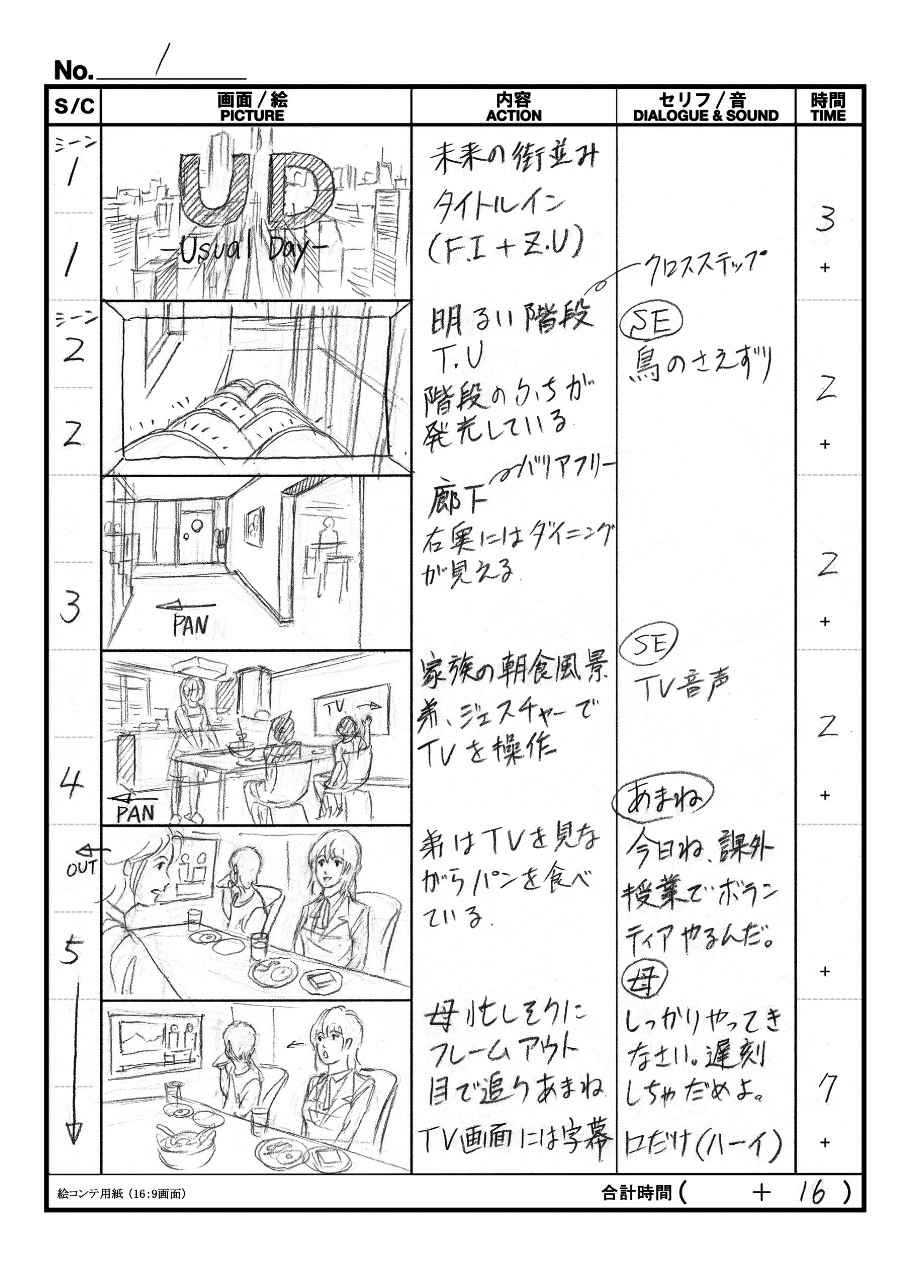 No. 1
S/C
画面/絵
PICTURE
内容
ACTION
セリフ/音
DIALOGUE & SOUND
時間
TIME
シーン
1
1
UD
-Usual Day-
未来の街並み
タイトルイン
(F.I+Z.U)
3
+
シーン
2
2
明るい階段
T.U
階段のふちが
発光している
クロスステップ
SE
鳥のさえずり
2
+
3
PAN
廊下
右奥にはダイニング
が見える
バリアフリー
2
+
4
TV
PAN
家族の朝食風景
弟、ジェスチャーで
TVを操作
SE
TV音声
2
+
OUT
5
弟はTVを見な
がらパンを食べ
ている
あまね
今日ね、課外
授業でボラン
ティアやるんだ。
+
母忙しそうに
フレームアウト
目で追うあまね
TV画面には字幕
母
しっかりやってき
なさい。遅刻
しちゃだめよ。
口だけ(ハーイ)
7
+
絵コンテ用紙(16:9画面)
合計時間( + 16 )